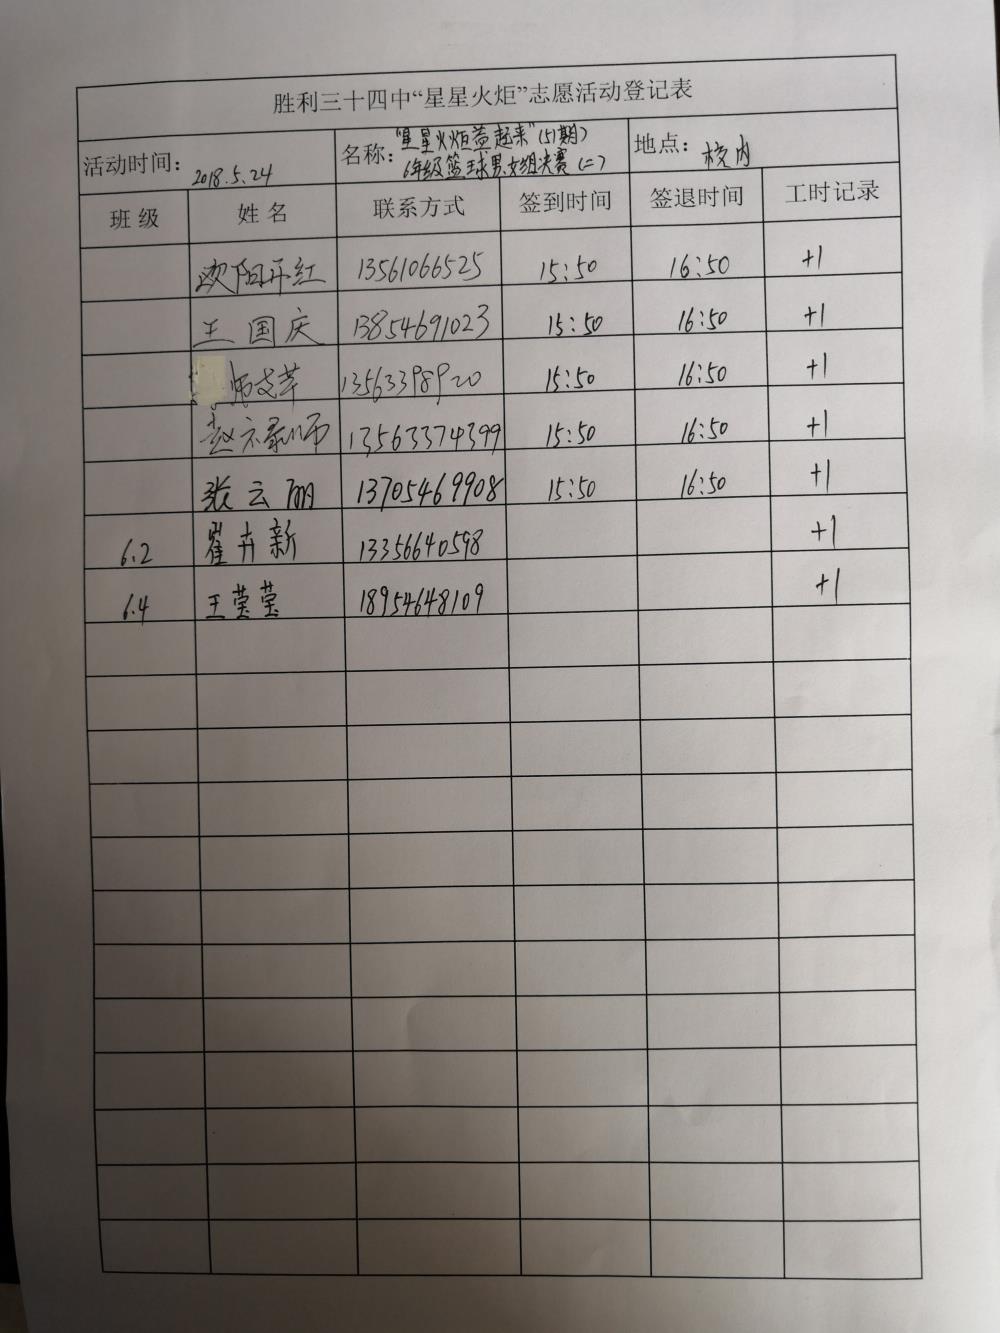 胜利三十四中“星星火炬”志愿活动登记表
活动时间: 2018.5.24 名称: “星星火炬益起来”(51期) 6年级篮球男女组决赛(二) 地点: 校内
班级 姓名 联系方式 签到时间 签退时间 工时记录
欧阳开红 13561066525 15:50 16:50 +1
王国庆 13854691023 15:50 16:50 +1
13563398920 15:50 16:50 +1
赵 13563374399 15:50 16:50 +1
张云丽 13705469908 15:50 16:50 +1
6.2 翟卉新 13356640598 +1
6.4 王莹莹 18954648109 +1